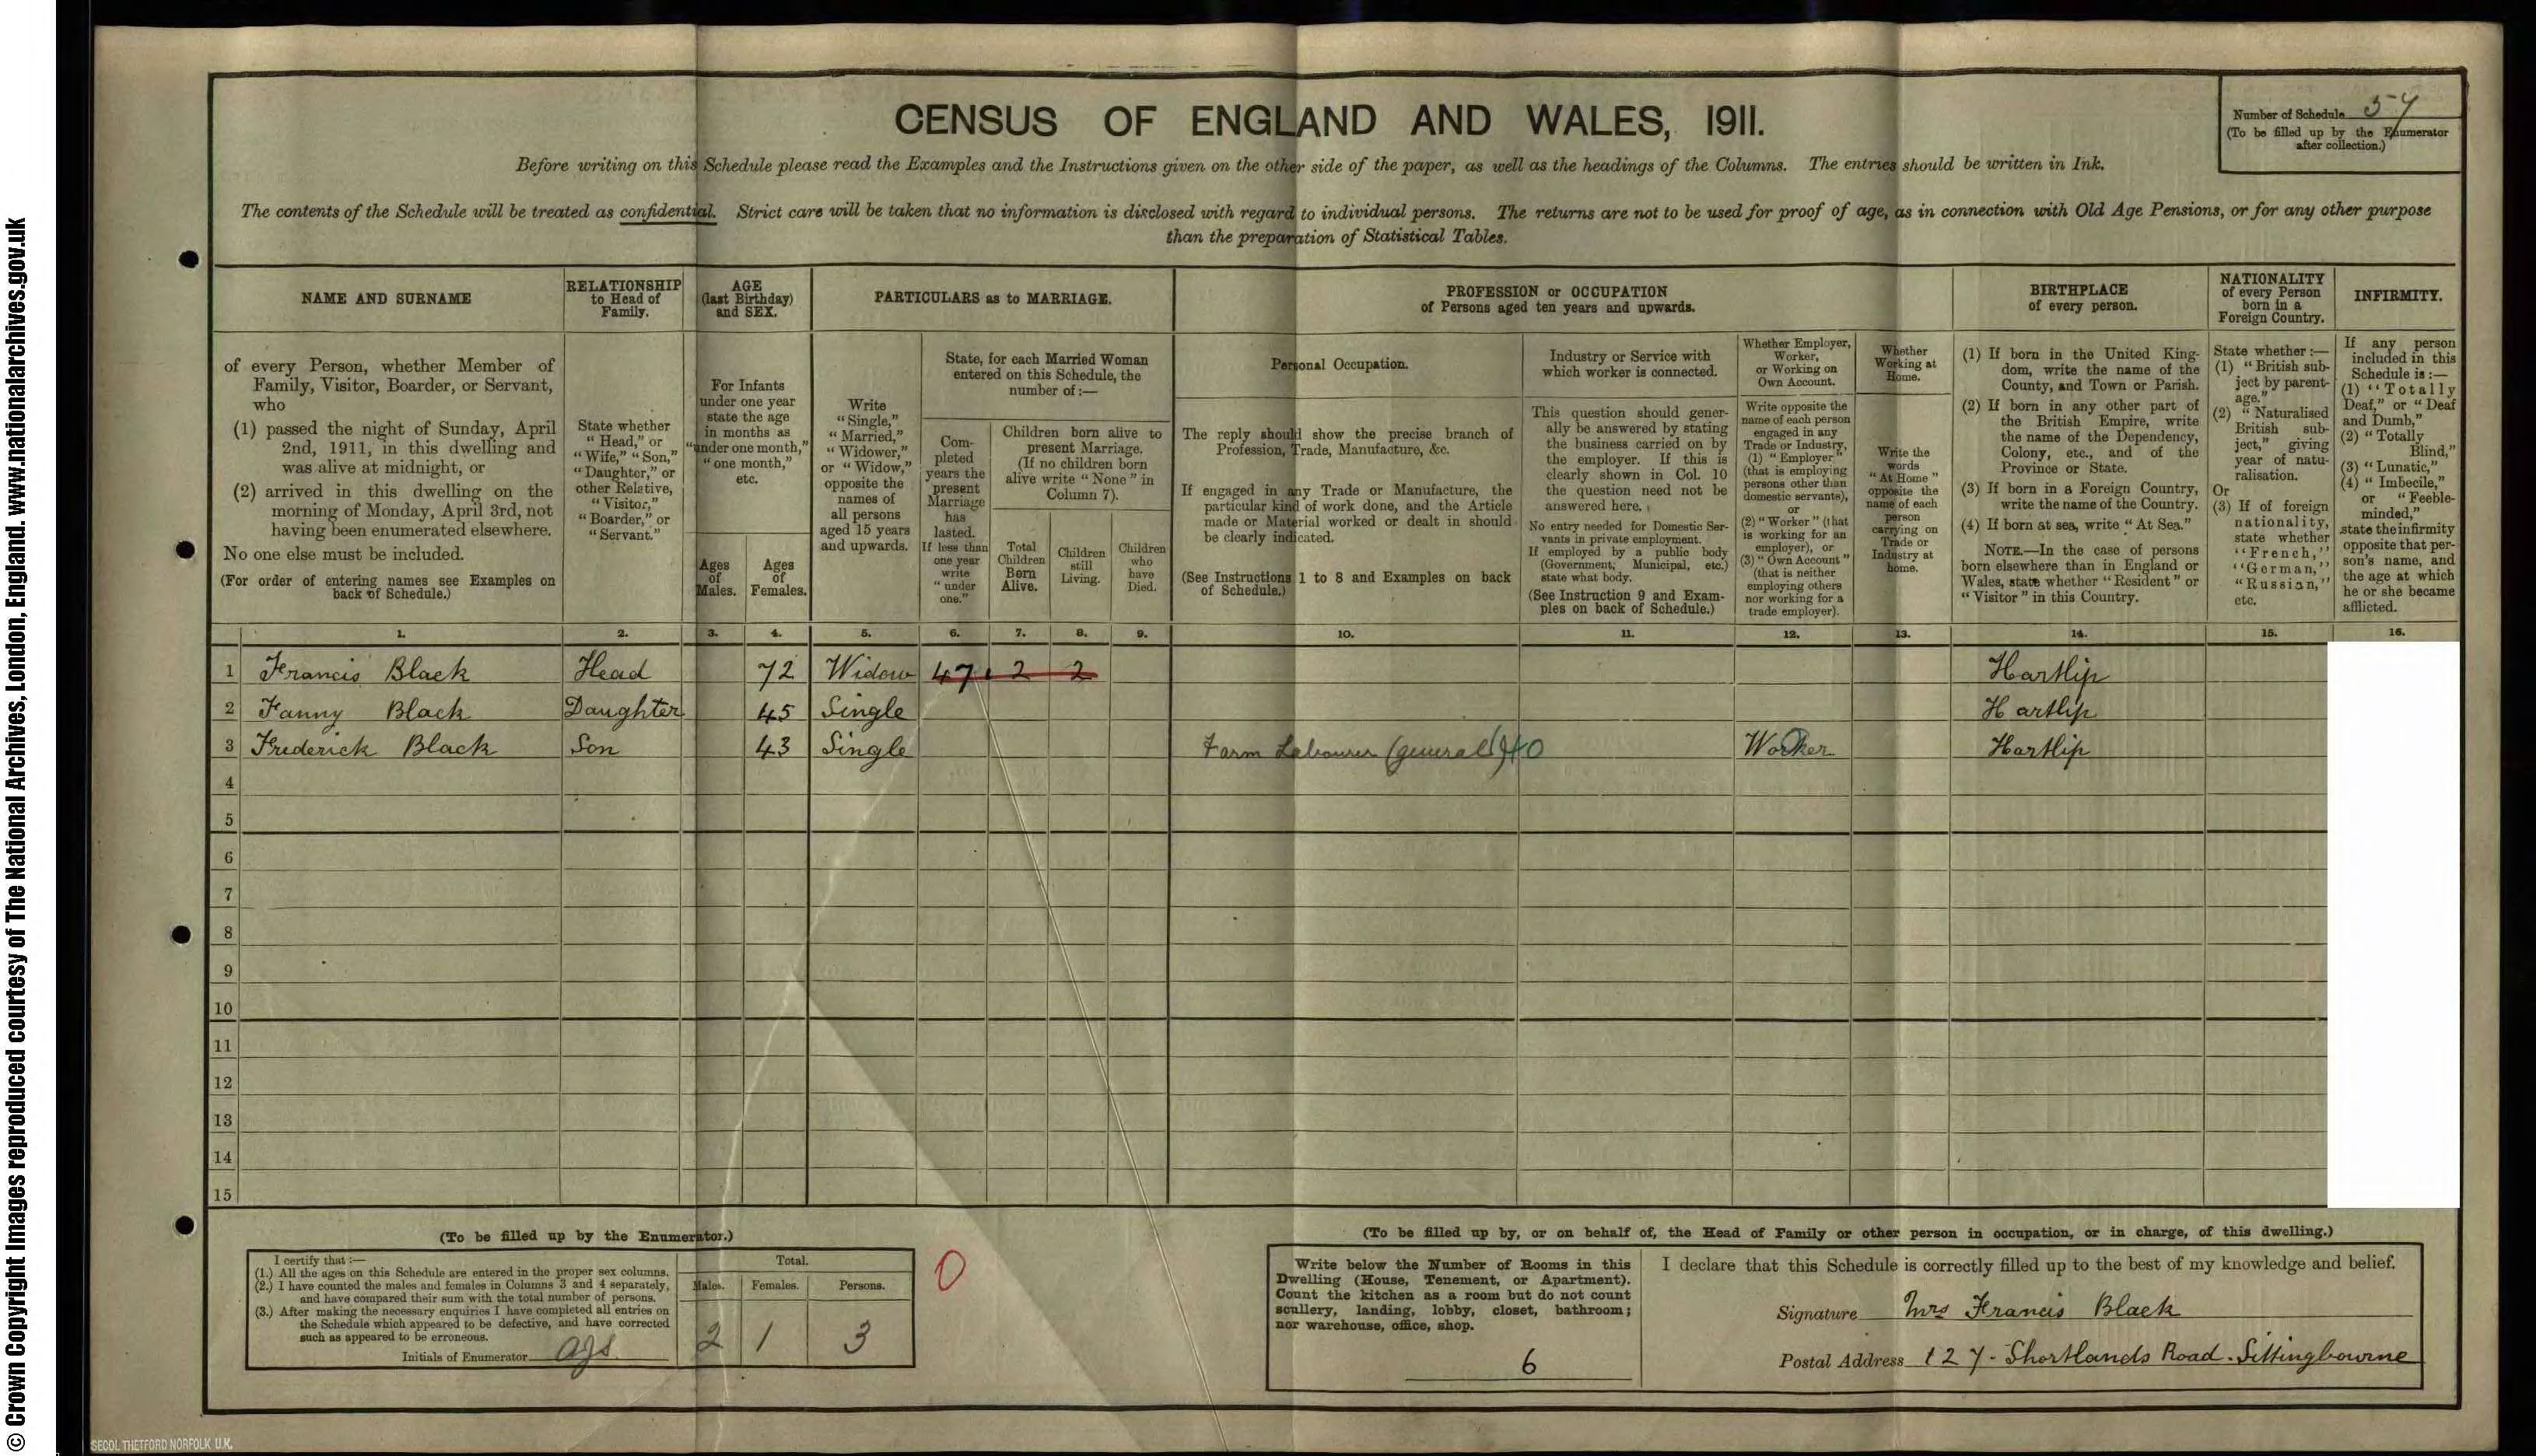 CENSUS OF ENGLAND AND WALES, 1911.
Number of Schedule 57
(To be filled up by the Enumerator
after collection.)
Before writing on this Schedule please read the Examples and the Instructions given on the other side of the paper, as well as the headings of the Columns. The entries should be written in Ink.
The contents of the Schedule will be treated as confidential. Strict care will be taken that no information is disclosed with regard to individual persons. The returns are not to be used for proof of age, as in connection with Old Age Pensions, or for any other purpose
than the preparation of Statistical Tables.
NAME AND SURNAME
of every Person, whether Member of
Family, Visitor, Boarder, or Servant,
who
(1) passed the night of Sunday, April
2nd, 1911, in this dwelling and
was alive at midnight, or
(2) arrived in this dwelling on the
morning of Monday, April 3rd, not
having been enumerated elsewhere.
No one else must be included.
(For order of entering names see Examples on
back of Schedule.)
RELATIONSHIP
to Head of
Family.
State whether
"Head," or
"Wife," "Son,"
"Daughter," or
other Relative,
"Visitor,"
"Boarder," or
"Servant."
AGE
(last Birthday)
and SEX.
For Infants
under one year
state the age
in months as
"under one month,"
"one month,"
etc.
Ages
of
Males.
Ages
of
Females.
PARTICULARS as to MARRIAGE.
Write
"Single,"
"Married,"
"Widower,"
or "Widow,"
opposite the
names of
all persons
aged 15 years
and upwards.
State, for each Married Woman
entered on this Schedule, the
number of :—
Com-
pleted
years the
present
Marriage
has
lasted.
If less than
one year
write
"under
one."
Children born alive to
present Marriage.
(If no children born
alive write "None" in
Column 7).
Total
Children
Born
Alive.
Children
still
Living.
Children
who
have
Died.
PROFESSION or OCCUPATION
of Persons aged ten years and upwards.
Personal Occupation.
The reply should show the precise branch of
Profession, Trade, Manufacture, &c.
If engaged in any Trade or Manufacture, the
particular kind of work done, and the Article
made or Material worked or dealt in should
be clearly indicated.
(See Instructions 1 to 8 and Examples on back
of Schedule.)
Industry or Service with
which worker is connected.
This question should gener-
ally be answered by stating
the business carried on by
the employer. If this is
clearly shown in Col. 10
the question need not be
answered here.
No entry needed for Domestic Ser-
vants in private employment.
If employed by a public body
(Government, Municipal, etc.)
state what body.
(See Instruction 9 and Exam-
ples on back of Schedule.)
Whether Employer,
Worker,
or Working on
Own Account.
Write opposite the
name of each person
engaged in any
Trade or Industry,
(1) "Employer"
(that is employing
persons other than
domestic servants),
or
(2) "Worker" (that
is working for an
employer), or
(3) "Own Account"
(that is neither
employing others
nor working for a
trade employer).
Whether
Working at
Home.
Write the
words
"At Home"
opposite the
name of each
person
carrying on
Trade or
Industry at
home.
BIRTHPLACE
of every person.
(1) If born in the United King-
dom, write the name of the
County, and Town or Parish.
(2) If born in any other part of
the British Empire, write
the name of the Dependency,
Colony, etc., and of the
Province or State.
(3) If born in a Foreign Country,
write the name of the Country.
(4) If born at sea, write "At Sea."
NOTE.—In the case of persons
born elsewhere than in England or
Wales, state whether "Resident" or
"Visitor" in this Country.
NATIONALITY
of every Person
born in a
Foreign Country.
State whether :—
(1) "British sub-
ject by parent-
age."
(2) "Naturalised
British sub-
ject," giving
year of natu-
ralisation.
Or
(3) If of foreign
nationality,
state whether
"French,"
"German,"
"Russian,"
etc.
INFIRMITY.
If any person
included in this
Schedule is :—
(1) "Totally
Deaf," or "Deaf
and Dumb,"
(2) "Totally
Blind,"
(3) "Lunatic,"
(4) "Imbecile,"
or "Feeble-
minded,"
state the infirmity
opposite that per-
son's name, and
the age at which
he or she became
afflicted.
1. 2. 3. 4. 5. 6. 7. 8. 9. 10. 11. 12. 13. 14. 15. 16.
1 Francis Black Head 72 Widow 47 2 2 Hartlip
2 Fanny Black Daughter 45 Single Hartlip
3 Frederick Black Son 43 Single Farm Labourer (general) Worker Hartlip
4
5
6
7
8
9
10
11
12
13
14
15
(To be filled up by the Enumerator.)
I certify that :—
(1.) All the ages on this Schedule are entered in the proper sex columns.
(2.) I have counted the males and females in Columns 3 and 4 separately,
and have compared their sum with the total number of persons.
(3.) After making the necessary enquiries I have completed all entries on
the Schedule which appeared to be defective, and have corrected
such as appeared to be erroneous.
Initials of Enumerator
Total.
Males. Females. Persons.
2 1 3
0
(To be filled up by, or on behalf of, the Head of Family or other person in occupation, or in charge, of this dwelling.)
Write below the Number of Rooms in this
Dwelling (House, Tenement, or Apartment).
Count the kitchen as a room but do not count
scullery, landing, lobby, closet, bathroom;
nor warehouse, office, shop.
6
I declare that this Schedule is correctly filled up to the best of my knowledge and belief.
Signature Mrs Francis Black
Postal Address 127 - Shortlands Road. Sittingbourne
© Crown Copyright Images reproduced courtesy of The National Archives, London, England. www.nationalarchives.gov.uk
SECOL THETFORD NORFOLK U.K.